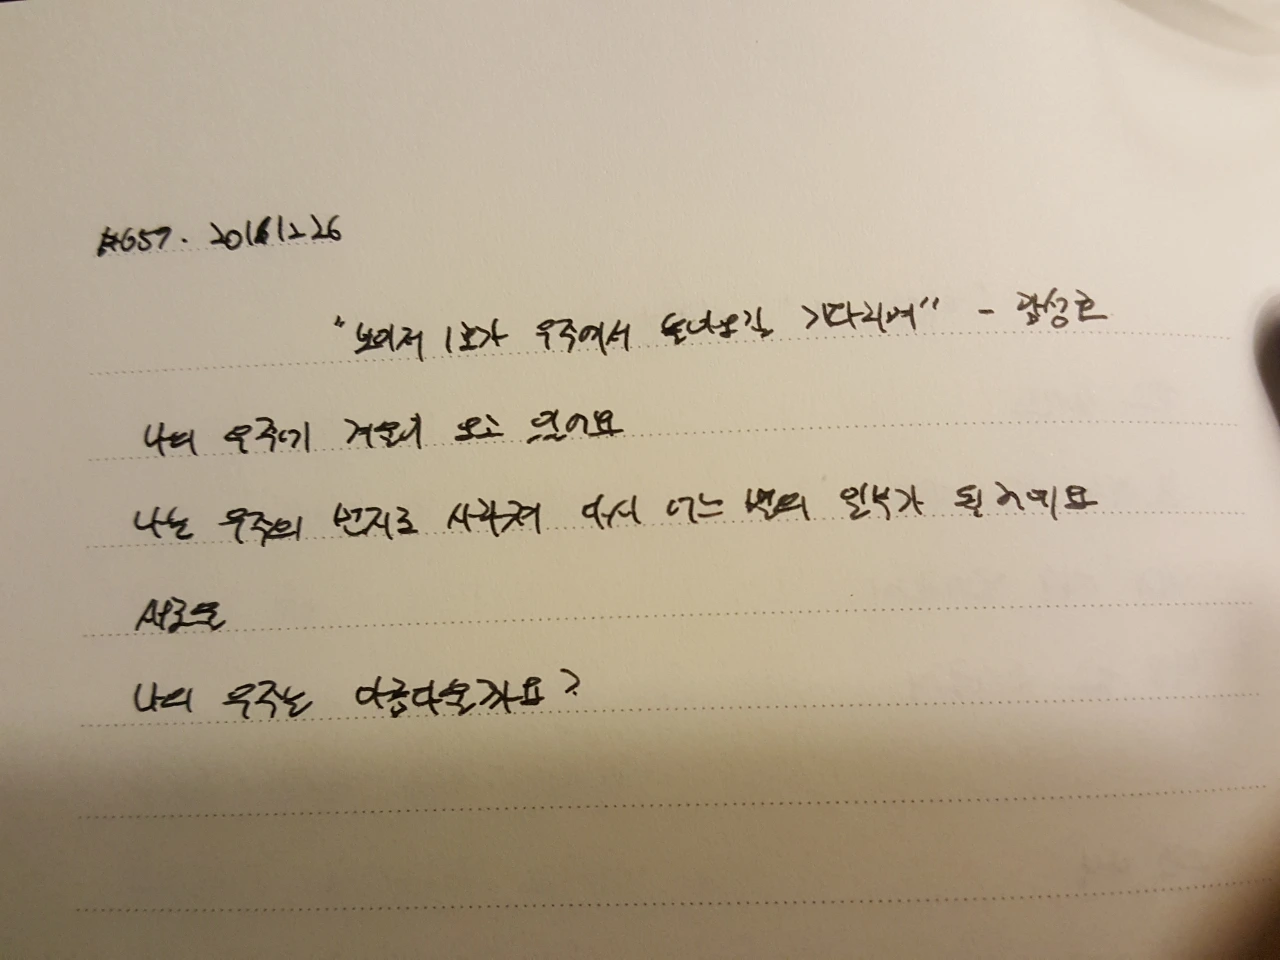 #657. 20161226
"보이저 1호가 우주에서 돌아오길 기다리며" -
나의 우주가 저물어 오고 있어요
나는 우주의 먼지로 사라져 다시 어느 별의 일부가 될 거예요
새로울
나의 우주는 아름다울까요?